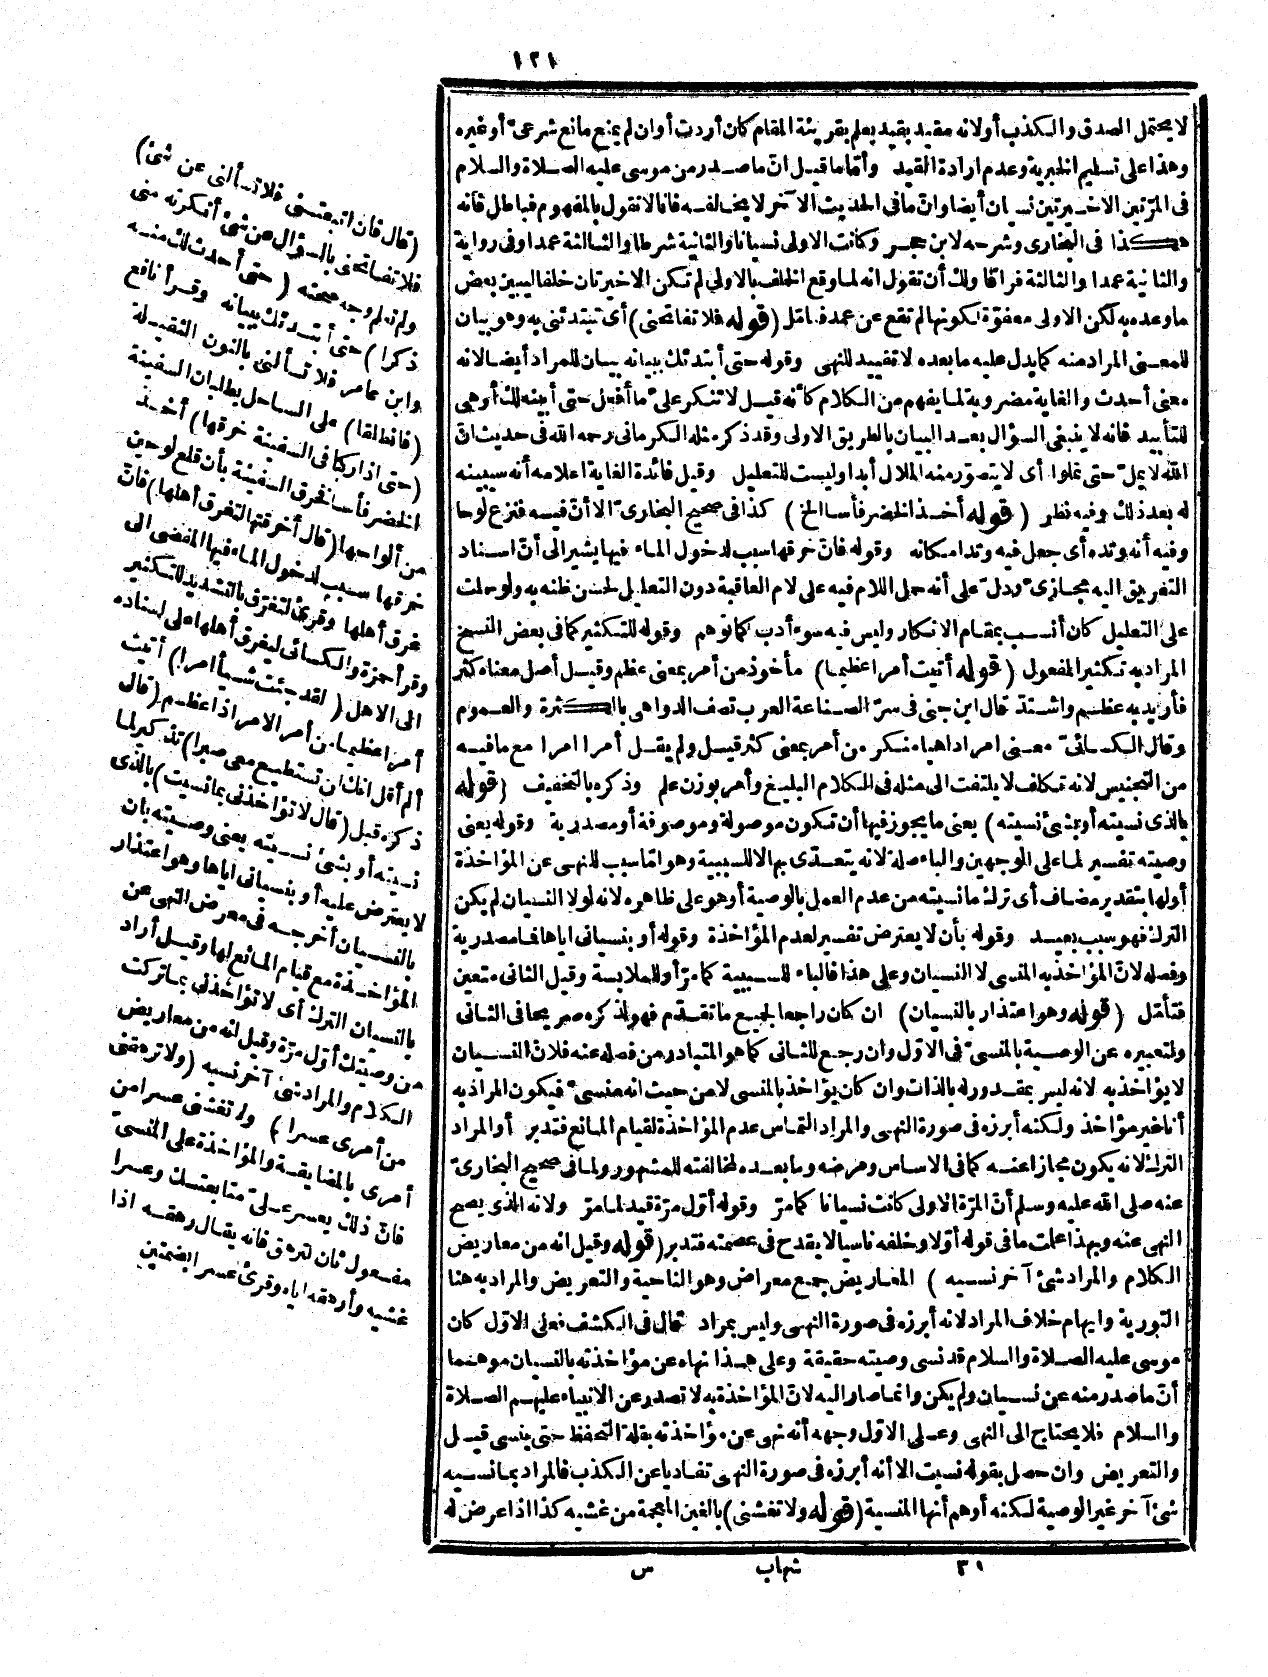 ١٢١
لا يحتمل الصدق والكذب أولانه مقيد بقيد يعلم بقرينة المقام كان أردت أوان لم يمنع مانع شرعىّ أوغيره
وهذا على تسليم الخبرية وعدم ارادة القيد وأمّا ما قيل انّ ما صدر من موسى عليه الصلاة والسلام
فى المرّتين الاخيرتين نسيان أيضا وانّ ما فى الحديث الآخر لا يخالفه فانا لا نقول بالمفهوم فباطل فانه
هكذا فى البخارى وشرحه لابن حجر وكانت الاولى نسيانا والثانية شرطا والثالثة عمدا وفى رواية
والثانية عمدا والثالثة فراقا ولك أن تقول انه لما وقع الخلف بالاولى لم تكن الاخيرتان خلفا ليبين بعض
ما وعده به لكن الاولى معفوّة لكونها لم تقع عن عمد فتأمّل (قوله فلا تفاتحنى) أى تبتدئنى به وهو بيان
للمعنى المراد منه كما يدل عليه ما بعده لا تقييد للنهى وقوله حتى أبتدئك ببيانه بيان للمراد أيضا لانه
معنى أحدث والغاية مضروبة لما يفهم من الكلام كأنه قيل لا تنكر علىّ ما أفعل حتى أبينه لك أو هى
للتأبيد فانه لا ينبغى السؤال بعد البيان بالطريق الاولى وقد ذكر مثله الكرمانى رحمه الله فى حديث انّ
الله لا يملّ حتى تملوا أى لا يتصوّر منه الملال أبدا وليست للتعليل وقيل فائدة الغاية اعلامه أنه سيبينه
له بعد ذلك وفيه نظر (قوله أخذ الخضر فأسا الخ) كذا فى صحيح البخارىّ الا أنّ فيه فنزع لوحا
وفيه أنه وتده أى جعل فيه وتدا مكانه وقوله فانّ خرقها سبب لدخول الماء فيها يشير الى أنّ اسناد
التغريق اليه مجازىّ ودلّ على أنه حمل اللام فيه على لام العاقبة دون التعليل لحسن ظنه به ولو حملت
على التعليل كان أنسب بمقام الانكار وليس فيه سوء أدب كما توهم وقوله للتكثير كما فى بعض النسخ
المراد به تكثير المفعول (قوله أتيت أمرا عظيما) مأخوذ من أمر بمعنى عظم وقيل أصل معناه كثر
فأريد به عظم واشتدّ قال ابن جنى فى سرّ الصناعة العرب تصف الدواهى بالكثرة والعموم
وقال الكسائىّ معنى امرا داهياء منكر من أمر بمعنى كثر قيل ولم يقل أمرا امرا مع ما فيه
من التجنيس لانه تكلف لا يلتفت الى مثله فى الكلام البليغ وأمر بوزن علم وذكره بالتخفيف (قوله
بالذى نسيته أو بشئ نسيته) يعنى ما يجوز فيها أن تكون موصولة وموصوفة أو مصدرية وقوله يعنى
وصيته تفسير لما على الوجهين والباء صلة لانه يتعدّى بها لا للسببية وهو امّا سبب للنهى عن المؤاخذة
أولها بتقدير مضاف أى ترك ما نسيته من عدم العمل بالوصية أو هو على ظاهره لانه لولا النسيان لم يكن
الترك فهو سبب بعيد وقوله بأن لا يعترض تفسير لعدم المؤاخذة وقوله أو بنسيانى اياها فما مصدرية
وفصله لانّ المؤاخذ به المنسى لا النسيان وعلى هذا فالباء للسببية كما مرّ أو للملابسة وقيل الثانى متعين
فتأمّل (قوله وهو اعتذار بالنسيان) ان كان راجعا لجميع ما تقدّم فهو لذكره صريحا فى الثانى
ولتعبيره عن الوصية بالمنسىّ فى الاوّل وان رجع للثانى كما هو المتبادر من فصله عنه فلانّ النسيان
لا يؤاخذ به لانه ليس بمقدور له بالذات وان كان يؤاخذ بالمنسى لا من حيث انه منسىّ فيكون المراد به
أنا غير مؤاخذ ولكنه أبرزه فى صورة النهى والمراد التماس عدم المؤاخذة لقيام المانع فتدبر أو المراد
الترك لانه يكون مجازا عنه كما فى الاساس ومرضه وما بعده لمخالفته للمشهور ولما فى صحيح البخارىّ
عنه صلى الله عليه وسلم أنّ المرّة الاولى كانت نسيانا كما مرّ وقوله أوّل مرّة قيد لما مرّ ولانه الذى يصح
النهى عنه وبهذا علمت ما فى قوله أوّلا وخلفه ناسيا لا يقدح فى عصمته فتدبر (قوله وقيل انه من معاريض
الكلام والمراد شئ آخر نسيه) المعاريض جمع معراض وهو الناحية والتعريض والمراد به هنا
التورية وايهام خلاف المراد لانه أبرزه فى صورة النهى وليس بمراد قال فى الكشف فعلى الاوّل كان
موسى عليه الصلاة والسلام قد نسى وصيته حقيقة وعلى هذا نهاه عن مؤاخذته بالنسيان موهما
أنّ ما صدر منه عن نسيان ولم يكن وانما صار اليه لانّ المؤاخذة به لا تصدر عن الانبياء عليهم الصلاة
والسلام فلا يحتاج الى النهى وعلى الاوّل وجهه أنه نهى عن مؤاخذته بقلة التحفظ حتى ينسى قيل
والتعريض وان حصل بقوله نسيت الا أنه أبرزه فى صورة النهى تفاديا عن الكذب فالمراد بما نسيه
شئ آخر غير الوصية لكنه أوهم أنها المنسية (قوله ولا تغشنى) بالغين المعجمة من غشيه كذا اذا عرض له
(قال فان اتبعتنى فلا تسألنى عن شئ)
فلا تفاتحنى بالسؤال عن شئ أنكرته منى
ولم تعلم وجه صحته (حتى أحدث لك منه
ذكرا) حتى أبتدئك ببيانه وقرأ نافع
وابن عامر فلا تسألنى بالنون الثقيلة
(فانطلقا) على الساحل يطلبان السفينة
(حتى اذا ركبا فى السفينة خرقها) أخذ
الخضر فأسا فخرق السفينة بأن قلع لوحين
من ألواحها (قال أخرقتها لتغرق أهلها) فانّ
خرقها سبب لدخول الماء فيها المفضى الى
غرق أهلها وقرئ لتغرّق بالتشديد للتكثير
وقرأ حمزة والكسائى ليغرق أهلها على اسناده
الى الاهل (لقد جئت شيأ امرا) أتيت
أمرا عظيما من أمر الامر اذا عظم (قال
ألم أقل انك لن تستطيع معى صبرا) تذكير لما
ذكره قبل (قال لا تؤاخذنى بما نسيت) بالذى
نسيته أو بشئ نسيته يعنى وصيته بان
لا يعترض عليه أو بنسيانى اياها وهو اعتذار
بالنسيان أخرجه فى معرض النهى عن
المؤاخذة مع قيام المانع لها وقيل أراد
بالنسيان الترك أى لا تؤاخذنى بما تركت
من وصيتك أوّل مرّة وقيل انه من معاريض
الكلام والمراد شئ آخر نسيه (ولا ترهقنى
من أمرى عسرا) ولا تغشنى عسرا من
أمرى بالمضايقة والمؤاخذة على المنسىّ
فانّ ذلك يعسر علىّ متابعتك وعسرا
مفعول ثان لترهق فانه يقال رهقه اذا
غشيه وأرهقه اياه وقرئ عسرا بضمتين
٣١ شهاب س